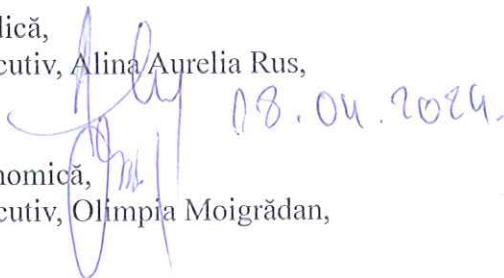 dică,
cutiv, Alina Aurelia Rus,
08.04.2024.
nomică,
cutiv, Olimpia Moigrădan,